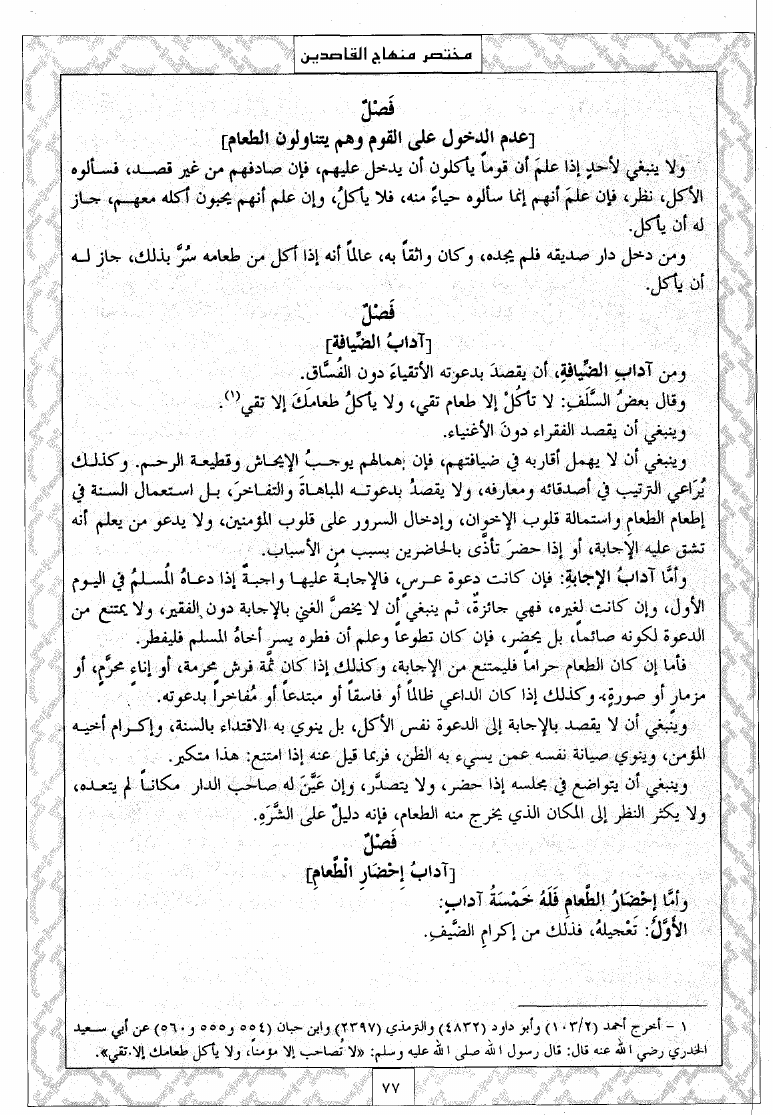 مختصر منهاج القاصدين
فَصْلٌ
[عدم الدخول على القوم وهم يتناولون الطعام]
ولا ينبغي لأحدٍ إذا علمَ أن قوماً يأكلون أن يدخل عليهم، فإن صادفهم من غير قصد، فسألوه
الأكل، نظر، فإن علمَ أنهم إنما سألوه حياءً منه، فلا يأكلُ، وإن علم أنهم يحبون أكله معهم، جاز
له أن يأكل.
ومن دخل دار صديقه فلم يجده، وكان واثقاً به، عالماً أنه إذا أكل من طعامه سُرَّ بذلك، جاز له
أن يأكل.
فَصْلٌ
[آدابُ الضِّيافة]
ومن آدابِ الضِّيافةِ، أن يقصدَ بدعوته الأتقياءَ دون الفُسَّاق.
وقال بعضُ السَّلَفِ: لا تأكُلْ إلا طعام تقي، ولا يأكلُ طعامكَ إلا تقي(١).
وينبغي أن يقصد الفقراء دونَ الأغنياء.
وينبغي أن لا يهمل أقاربه في ضيافتهم، فإن إهمالهم يوجبُ الإيحاش وقطيعة الرحم. وكذلك
يُرَاعي الترتيب في أصدقائه ومعارفه، ولا يقصدُ بدعوته المباهاةَ والتفاخرَ، بل استعمال السنة في
إطعام الطعام واستمالة قلوب الإخوان، وإدخال السرور على قلوب المؤمنين، ولا يدعو من يعلم أنه
تشق عليه الإجابة، أو إذا حضرَ تأذَّى بالحاضرين بسبب من الأسباب.
وأمَّا آدابُ الإجابةِ: فإن كانت دعوة عرس، فالإجابةُ عليها واجبةٌ إذا دعاهُ المُسلمُ في اليوم
الأول، وإن كانت لغيره، فهي جائزةٌ، ثم ينبغي أن لا يخصَّ الغني بالإجابة دون الفقير، ولا يمتنع من
الدعوة لكونه صائماً، بل يحضر، فإن كان تطوعاً وعلم أن فطره يسر أخاهُ المسلم فليفطر.
فأما إن كان الطعام حراماً فليمتنع من الإجابة، وكذلك إذا كان ثمَّة فرش محرمة، أو إناءٍ محرَّمٍ، أو
مزمارٍ أو صورةٍ، وكذلك إذا كان الداعي ظالماً أو فاسقاً أو مبتدعاً أو مُفاخراً بدعوته.
وينبغي أن لا يقصد بالإجابة إلى الدعوة نفس الأكل، بل ينوي به الاقتداء بالسنة، وإكرام أخيه
المؤمن، وينوي صيانة نفسه عمن يسيء به الظن، فربما قيل عنه إذا امتنع: هذا متكبر.
وينبغي أن يتواضع في مجلسه إذا حضر، ولا يتصدَّر، وإن عَيَّنَ له صاحب الدار مكاناً لم يتعده،
ولا يكثر النظر إلى المكان الذي يخرج منه الطعام، فإنه دليلٌ على الشَّرَهِ.
فَصْلٌ
[آدابُ إِحْضَارِ الْطَّعامِ]
وأمَّا إِحْضَارُ الطَّعامِ فَلَهُ خَمْسَةُ آدابٍ:
الأوَّلُ: تَعْجيلهُ، فذلك من إكرامِ الضَّيفِ.
١ - أخرج أحمد (١٠٣/٢) وأبو داود (٤٨٣٢) والترمذي (٢٣٩٧) وابن حبان (٥٥٤ و٥٥٥ و٥٦٠) عن أبي سعيد
الخدري رضي الله عنه قال: قال رسول الله صلى الله عليه وسلم: «لا تُصاحب إلا مؤمناً، ولا يأكل طعامك إلا تقي».
٧٧